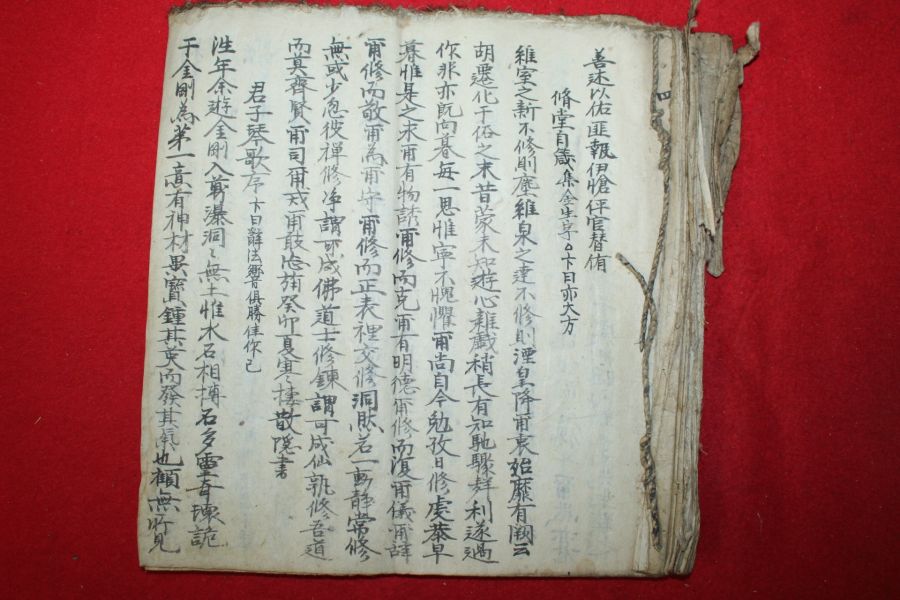 善述以佑匪報伊愴伻官替侑
脩堂自箴 集金生字 卞曰亦大方
維室之新不修則塵維泉之達不修則湮皇降甫衷始靡有闕云
胡遷化于俗之末昔蒙未知遊心雜戲稍長有知馳驟群利遂過
作非亦旣向暮每一思惟寧不愧懼爾尚自今勉孜日修虔恭早
暮惟是之求爾有物誘爾修而克爾有明德爾修而復爾儀爾辞
爾修而敬爾為爾守爾修而正表裡交修洞然若一動靜常修
無或少怠彼禪修净謂可成佛道士修鍊謂可成仙孰修吾道
而莫齊賢爾司爾戒爾敢忘旃癸卯夏寒棲散隱書
君子琴歌序 卞曰辭法響俱勝佳作已
往年余遊金剛入萬瀑洞洞無土惟水石相搏石多靈奇瓌詭
于金剛為第一意有神材異寶鍾其英而發其氣也顧無所見